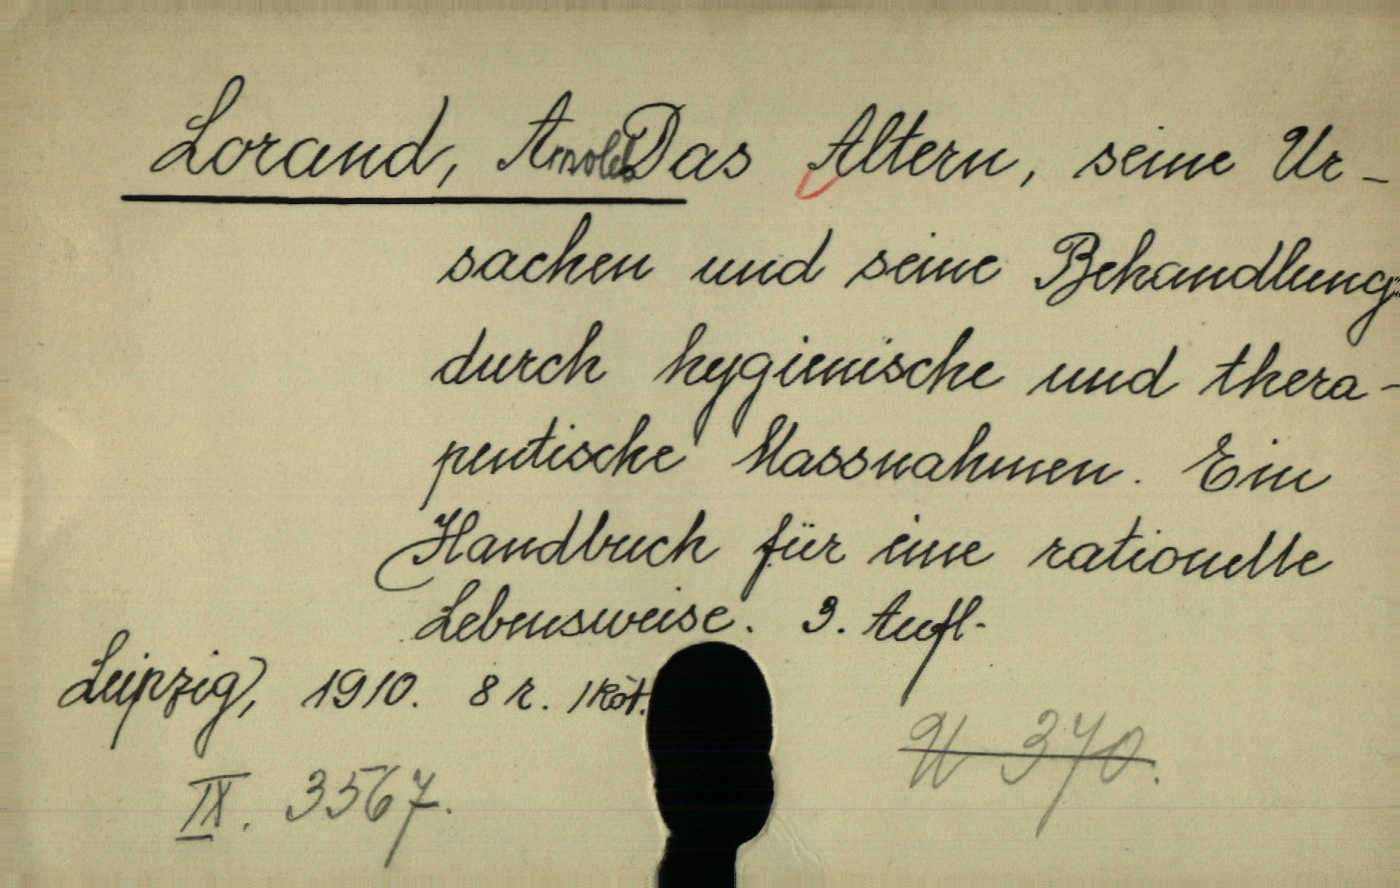 Lorand, Arnold Das Altern, seine Ur-
sachen und seine Behandlung
durch hygienische und thera-
peutische Massnahmen. Ein
Handbuch für eine rationelle
Lebensweise. 3. Aufl.
Leipzig, 1910. 8 r. 1 köt.
U 370.
IX. 3567.